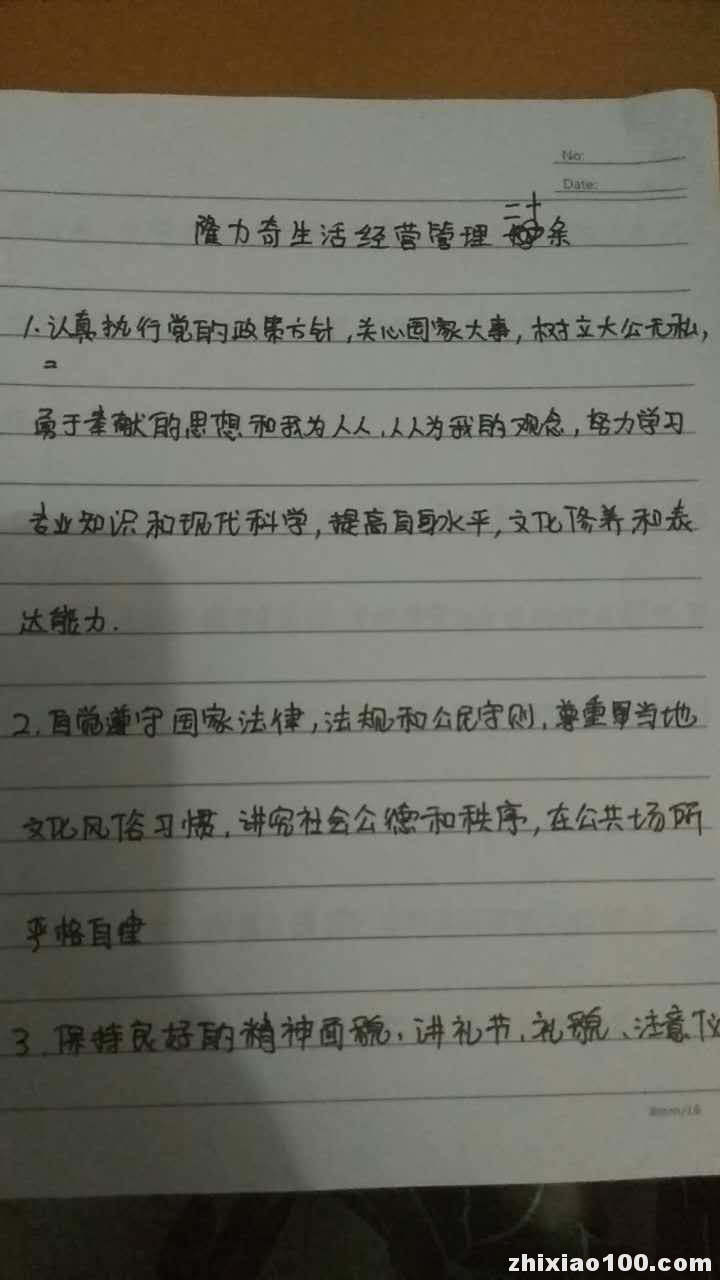 No:
Date:
隆力奇生活经营管理二十条
1.认真执行党的政策方针,关心国家大事,树立大公无私,
勇于奉献的思想和我为人人,人人为我的观念,努力学习
专业知识和现代科学,提高自身水平,文化修养和表
达能力.
2.自觉遵守国家法律,法规和公民守则,尊重当地
文化风俗习惯,讲究社会公德和秩序,在公共场所
严格自律
3.保持良好的精神面貌,讲礼节,礼貌、注意仪
8mm/16
zhixiao100.com